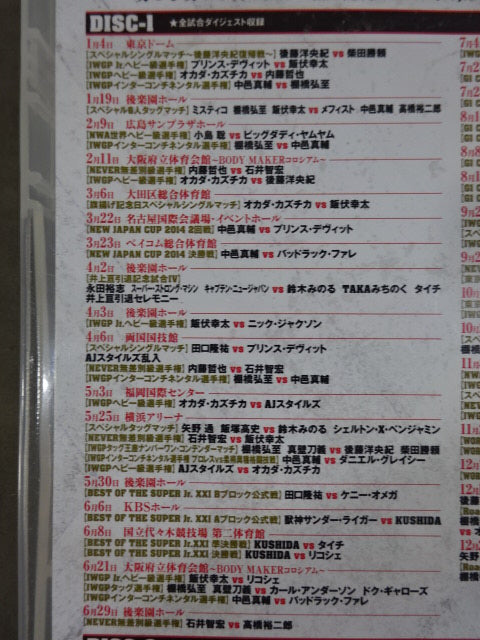 DISC-1 ★全試合ダイジェスト収録
1月4日 東京ドーム
[スペシャルシングルマッチ〜後藤洋央紀復帰戦〜] 後藤洋央紀 vs 柴田勝頼
[IWGP Jr.ヘビー級選手権] プリンス・デヴィット vs 飯伏幸太
[IWGPヘビー級選手権] オカダ・カズチカ vs 内藤哲也
[IWGPインターコンチネンタル選手権] 中邑真輔 vs 棚橋弘至
1月19日 後楽園ホール
[スペシャル6人タッグマッチ] ミスティコ 棚橋弘至 飯伏幸太 vs メフィスト 中邑真輔 高橋裕二郎
2月9日 広島サンプラザホール
[NWA世界ヘビー級選手権] 小島 聡 vs ビッグダディ・ヤムヤム
[IWGPインターコンチネンタル選手権] 棚橋弘至 vs 中邑真輔
2月11日 大阪府立体育会館〜BODY MAKERコロシアム〜
[NEVER無差別級選手権] 内藤哲也 vs 石井智宏
[IWGPヘビー級選手権] オカダ・カズチカ vs 後藤洋央紀
3月6日 大田区総合体育館
[旗揚げ記念日スペシャルシングルマッチ] オカダ・カズチカ vs 飯伏幸太
3月22日 名古屋国際会議場・イベントホール
[NEW JAPAN CUP 2014 2回戦] 中邑真輔 vs プリンス・デヴィット
3月23日 ベイコム総合体育館
[NEW JAPAN CUP 2014 決勝戦] 中邑真輔 vs バッドラック・ファレ
4月2日 後楽園ホール
[井上亘引退記念試合IV]
永田裕志 スーパー・ストロング・マシン キャプテン・ニュージャパン vs 鈴木みのる TAKAみちのく タイチ
井上亘引退セレモニー
4月3日 後楽園ホール
[IWGP Jr.ヘビー級選手権] 飯伏幸太 vs ニック・ジャクソン
4月6日 両国国技館
[スペシャルシングルマッチ] 田口隆祐 vs プリンス・デヴィット
AJスタイルズ乱入
[NEVER無差別級選手権] 内藤哲也 vs 石井智宏
[IWGPインターコンチネンタル選手権] 棚橋弘至 vs 中邑真輔
5月3日 福岡国際センター
[IWGPヘビー級選手権] オカダ・カズチカ vs AJスタイルズ
5月25日 横浜アリーナ
[スペシャルタッグマッチ] 矢野 通 飯塚高史 vs 鈴木みのる シェルトン・X・ベンジャミン
[NEVER無差別級選手権] 石井智宏 vs 飯伏幸太
[IWGPタッグ王座ナンバーワンコンテンダーマッチ] 棚橋弘至 真壁刀義 vs 後藤洋央紀 柴田勝頼
[IWGPインターコンチネンタル選手権] 中邑真輔 vs ダニエル・グレイシー
[IWGPヘビー級選手権] AJスタイルズ vs オカダ・カズチカ
5月30日 後楽園ホール
[BEST OF THE SUPER Jr. XXI Bブロック公式戦] 田口隆祐 vs ケニー・オメガ
6月6日 KBSホール
[BEST OF THE SUPER Jr. XXI Aブロック公式戦] 獣神サンダー・ライガー vs KUSHIDA
6月8日 国立代々木競技場 第二体育館
[BEST OF THE SUPER Jr.XXI 準決勝戦] KUSHIDA vs タイチ
[BEST OF THE SUPER Jr.XXI 決勝戦] KUSHIDA vs リコシェ
6月21日 大阪府立体育会館〜BODY MAKERコロシアム〜
[IWGP Jr.ヘビー級選手権] 飯伏幸太 vs リコシェ
[IWGPタッグ選手権] 棚橋弘至 真壁刀義 vs カール・アンダーソン ドク・ギャローズ
[IWGPインターコンチネンタル選手権] 中邑真輔 vs バッドラック・ファレ
6月29日 後楽園ホール
[NEVER無差別級選手権] 石井智宏 vs 高橋裕二郎